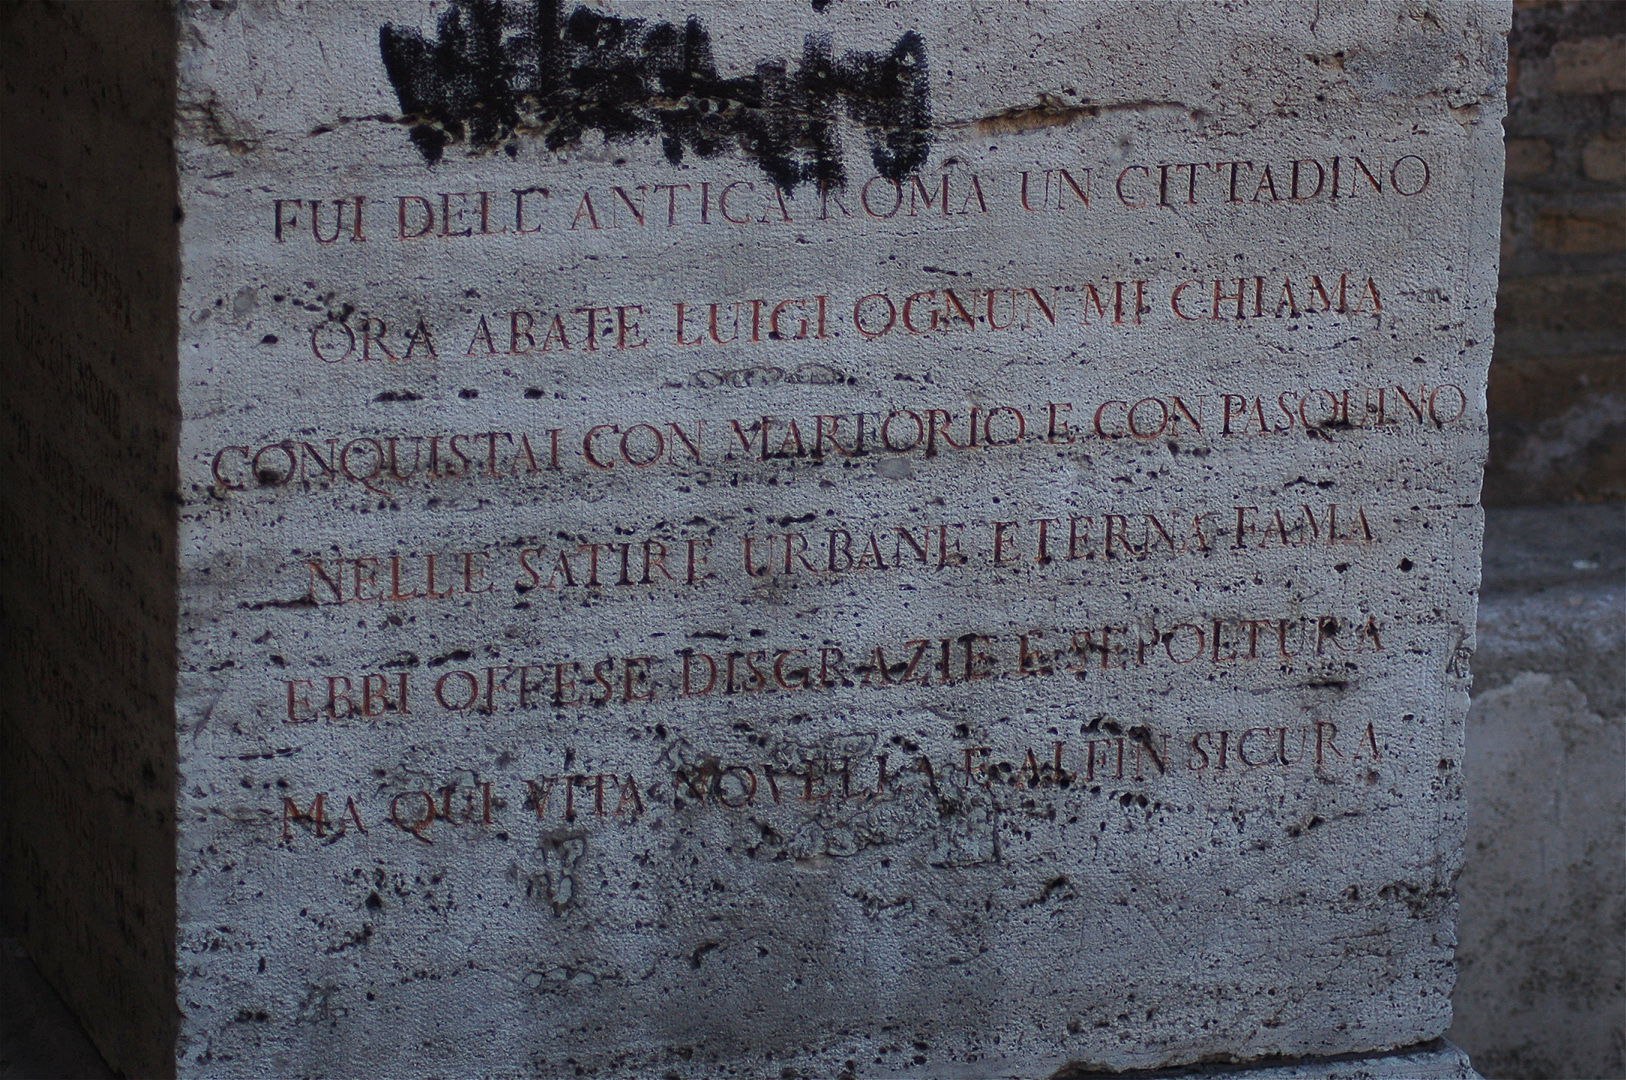 FUI DELL' ANTICA ROMA UN CITTADINO
ORA ABATE LUIGI OGNUN MI CHIAMA
CONQUISTAI CON MARFORIO E CON PASQUINO
NELLE SATIRE URBANE ETERNA FAMA
EBBI OFFESE DISGRAZIE E SEPOLTURA
MA QUI VITA NOVELLA E ALFIN SICURA